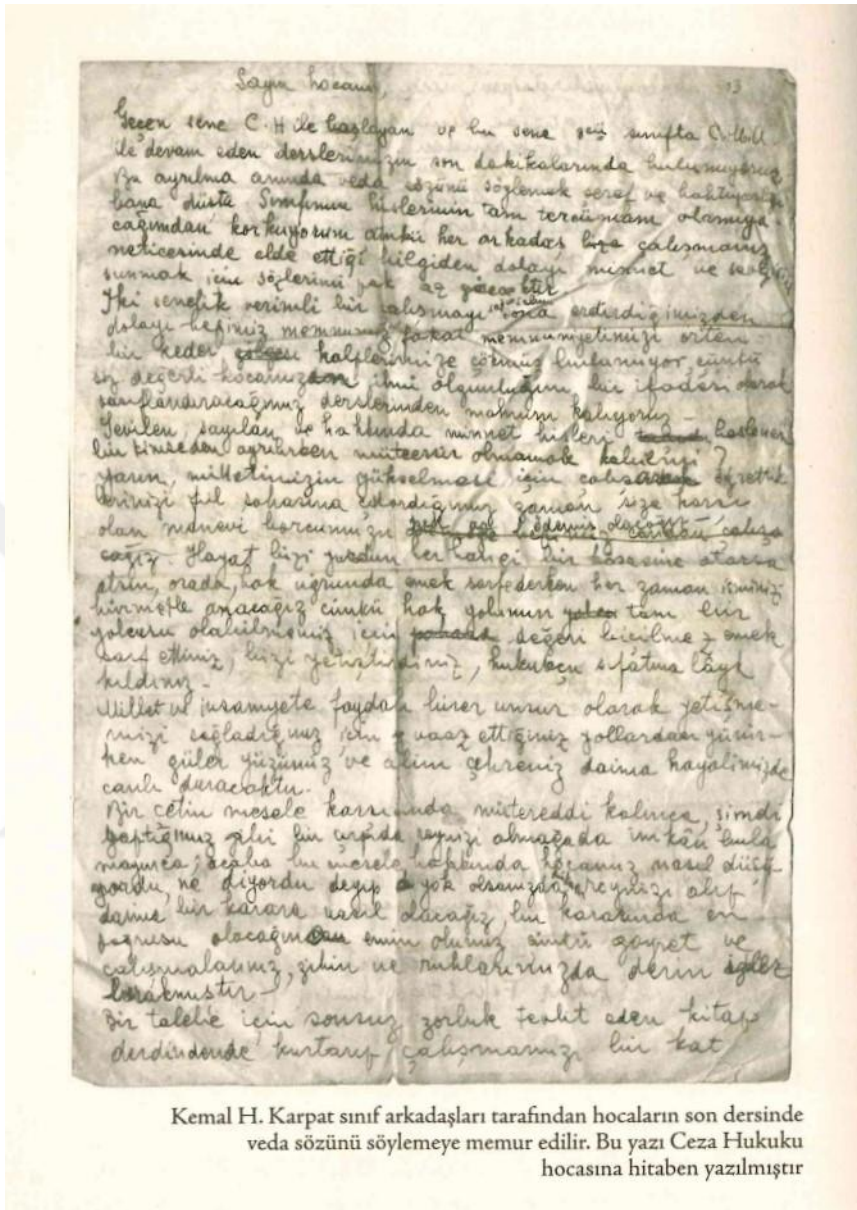 Sayın hocam,
Geçen sene C.H ile başlayan ve bu sene sınıfta C.M.U
ile devam eden derslerimizin son dakikalarında bulunuyoruz
Bu ayrılma anında veda sözünü söylemek şeref ve bahtiyarlığı
bana düştü. Sınıfımın hislerinin tam tercümanı olamıya-
cağımdan korkuyorum çünkü her arkadaş bize çalışmanız
neticesinde elde ettiği bilgiden dolayı minnet ve
sunmak için sözlerimi pek az
İki senelik verimli bir çalışmayı sona erdirdiğimizden
dolayı hepimiz memnunuz, fakat memnuniyetimizi örten
bir keder kalplerimize çökmüş bulunuyor, çünkü
siz değerli hocamızın ilmî olgunluğun bir ifadesi olarak
derslerinden mahrum kalıyoruz -
Sevilen, sayılan ve hakkında minnet hisleri beslenen
bir kimseden ayrılırken müteessir olmamak kabil mi?
Yarın, milletimizin yükselmesi için öğrettik
lerinizi fiil sahasına zaman size karşı
olan manevi borcumuzu çalışa
cağız. Hayat bizi yurdun herhangi bir köşesine atarsa
atsın, orada, hak uğrunda emek sarfederken her zaman isminizi
hürmetle anacağız çünkü hak yolunun tam bir
yolcusu olabilmemiz için değeri biçilmez emek
sarf ettiniz, bizi yetiştirdiniz, hukukçu sıfatına lâyık
kıldınız -
Millet ve insaniyete faydalı birer unsur olarak yetişme-
mizi sağladığınız için vaaz ettiğiniz yollardan yürür-
ken güler yüzünüz ve âlim çehreniz daima hayalimizde
canlı duracaktır.
Bir çetin mesele karşısında mütereddi kalınca, şimdi
yaptığımız gibi bir reynizi almağada imkân bula
mayınca; acaba bu mesele hakkında hocamız nasıl düşü-
yordu, ne diyordu deyip yok olsanızda reynizi alıp
daima bir karara vasıl olacağız, bu kararında en
doğrusu olacağından emin olunuz çünkü gayret ve
çalışmalarınız, zihin ve ruhlarımızda derin izler
bırakmıştır -
Bir talebe için sonsuz zorluk teşkil eden kitap
derdindende kurtarıp çalışmamızı bir kat
Kemal H. Karpat sınıf arkadaşları tarafından hocaların son dersinde
veda sözünü söylemeye memur edilir. Bu yazı Ceza Hukuku
hocasına hitaben yazılmıştır